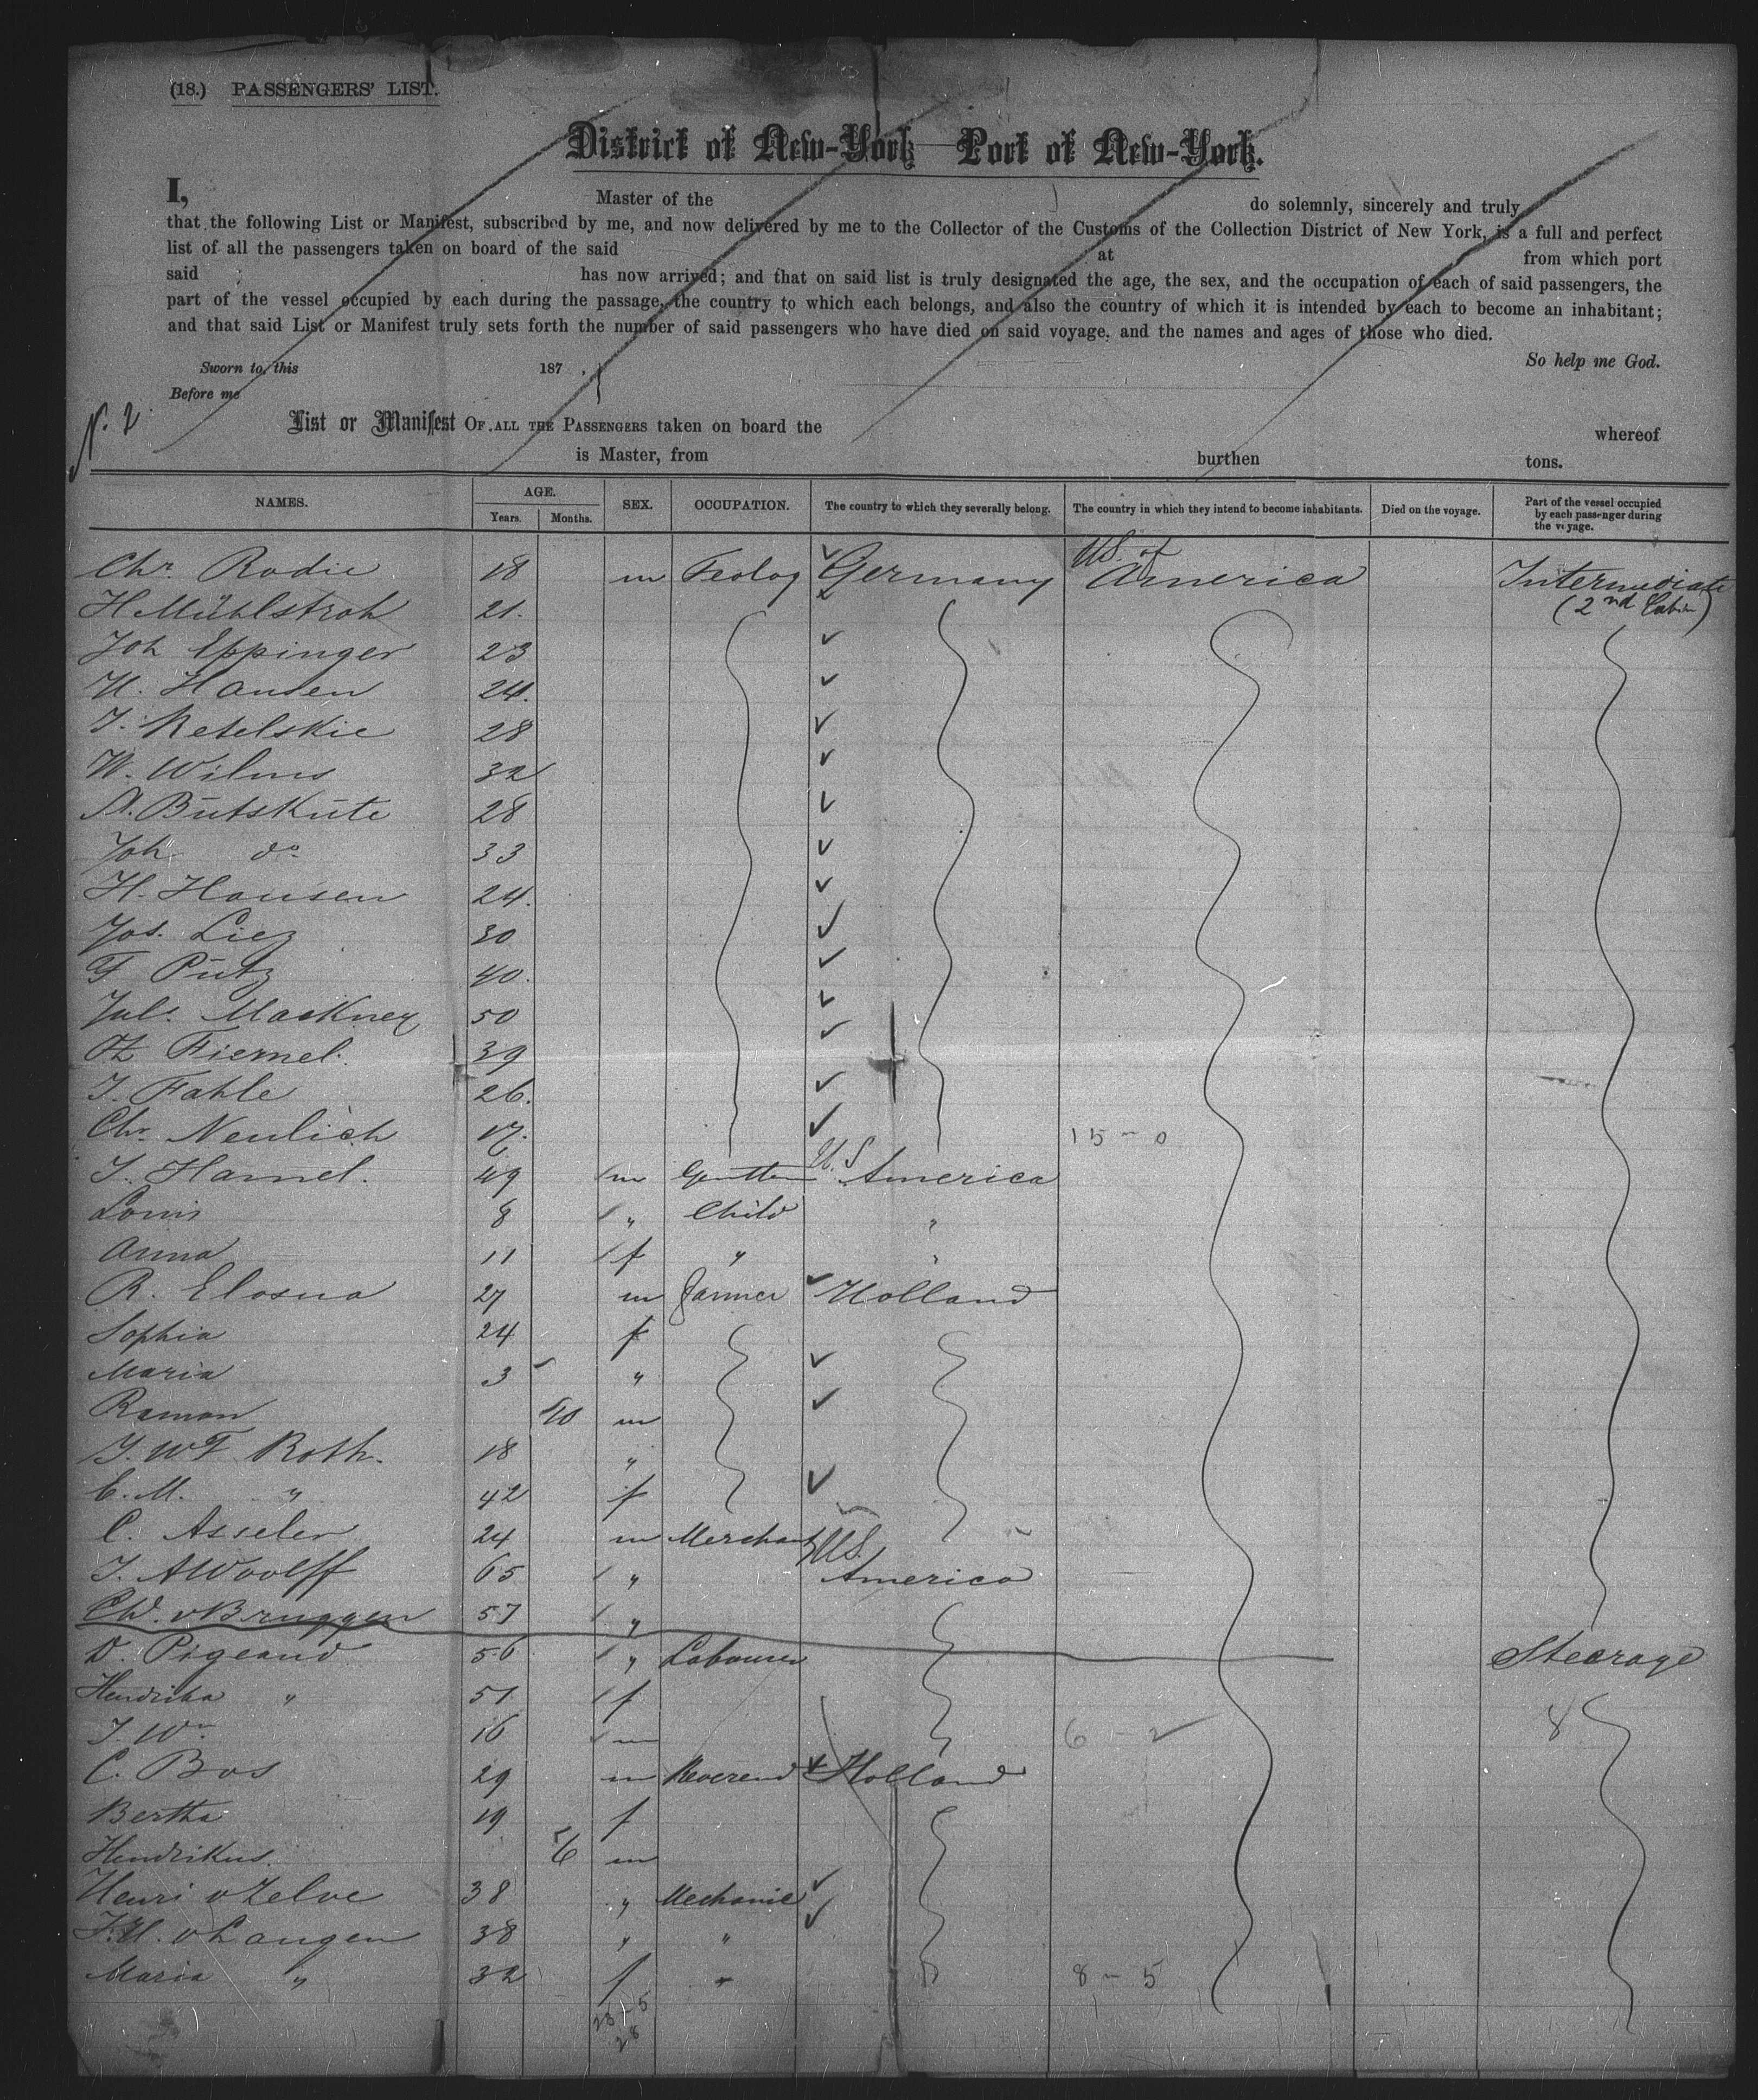 (18.) PASSENGERS' LIST.
District of New-York — Port of New-York.
I, Master of the do solemnly, sincerely and truly
that the following List or Manifest, subscribed by me, and now delivered by me to the Collector of the Customs of the Collection District of New York, is a full and perfect
list of all the passengers taken on board of the said at from which port
said has now arrived; and that on said list is truly designated the age, the sex, and the occupation of each of said passengers, the
part of the vessel occupied by each during the passage, the country to which each belongs, and also the country of which it is intended by each to become an inhabitant;
and that said List or Manifest truly sets forth the number of said passengers who have died on said voyage, and the names and ages of those who died.
So help me God.
Sworn to, this 187 .
Before me
N. 2
List or Manifest OF ALL THE PASSENGERS taken on board the whereof
is Master, from burthen tons.
NAMES. AGE. Years. Months. SEX. OCCUPATION. The country to which they severally belong. The country in which they intend to become inhabitants. Died on the voyage. Part of the vessel occupied by each passenger during the voyage.
Chr. Rodie 18 m Germany US of America Intermediate
H Mühlstroh 21. (2nd Cabin)
Joh Eppinger 23
H. Hansen 24.
J. Retelskie 28
W. Wilms 32
A. Butskute 28
Joh do 33
H. Hansen 24.
Jos. Liez 30
F Pütz 40.
Jul. Mackney 50
Fiemel. 39
J. Fahle 26.
Chr. Neulich 17. 15 - 0
J. Hamel. 49 m U.S America
Louis 8 " Child "
Anna 11 f " "
R. Elosua 27 m Farmer Holland
Sophia 24 f
Maria 3 "
Ramon 10 m
J. W F Roth. 18 "
C. M. " 42 f
C. Asseler 24 m Merchant US.
J. A Woolff 65 " America
v Bruggen 57 "
D. Pigeaud 56 " Labourer Stearage
Hendrika " 51 f
J. Wm 16 m 6 - 2 8
C. Bos 29 m Reverend Holland
Bertha 19 f
Hendrikus. 6 m
Henri v Zelve 38 " Mechanic
v Langen 38 " "
Maria " 32 f " 8 - 5
23 - 5
28